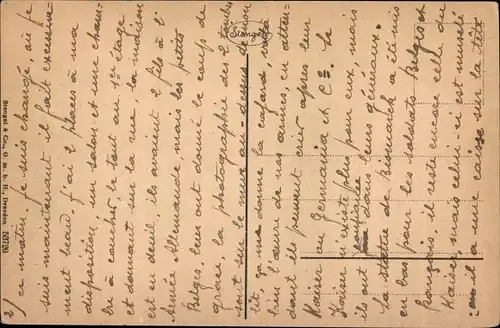 2/ ce matin. je suis changé, où je
suis maintenant il fait excessive-
ment beau. j'ai 2 places à ma
disposition, un salon et une cham-
bre à coucher le tout au 1er étage
et donnant sur la rue, la maison
est en deuil, ils avaient 2 fils à l'
Armée Allemande mais les petits
Belges leur ont donné le coup de
grace, la photographie des 2
sont sur le mur au-dessus de mon
lit, ça me donne la cafard, voilà
bien l'œuvre de nos armées, en atten-
dant ils peuvent crier après leur
Kaiser ou Germania et Cie. Le
Kaiser n'existe plus pour eux, mais
il ont confiance dans leurs généraux.
La statue de Bismarck a été mis
en bas pour les soldats Belges &
Français il reste encore celle du
Kaiser mais celui-ci est muselé
il a une caisse sur la tête
Stengel
Stengel & Co., G. m. b. H., Dresden